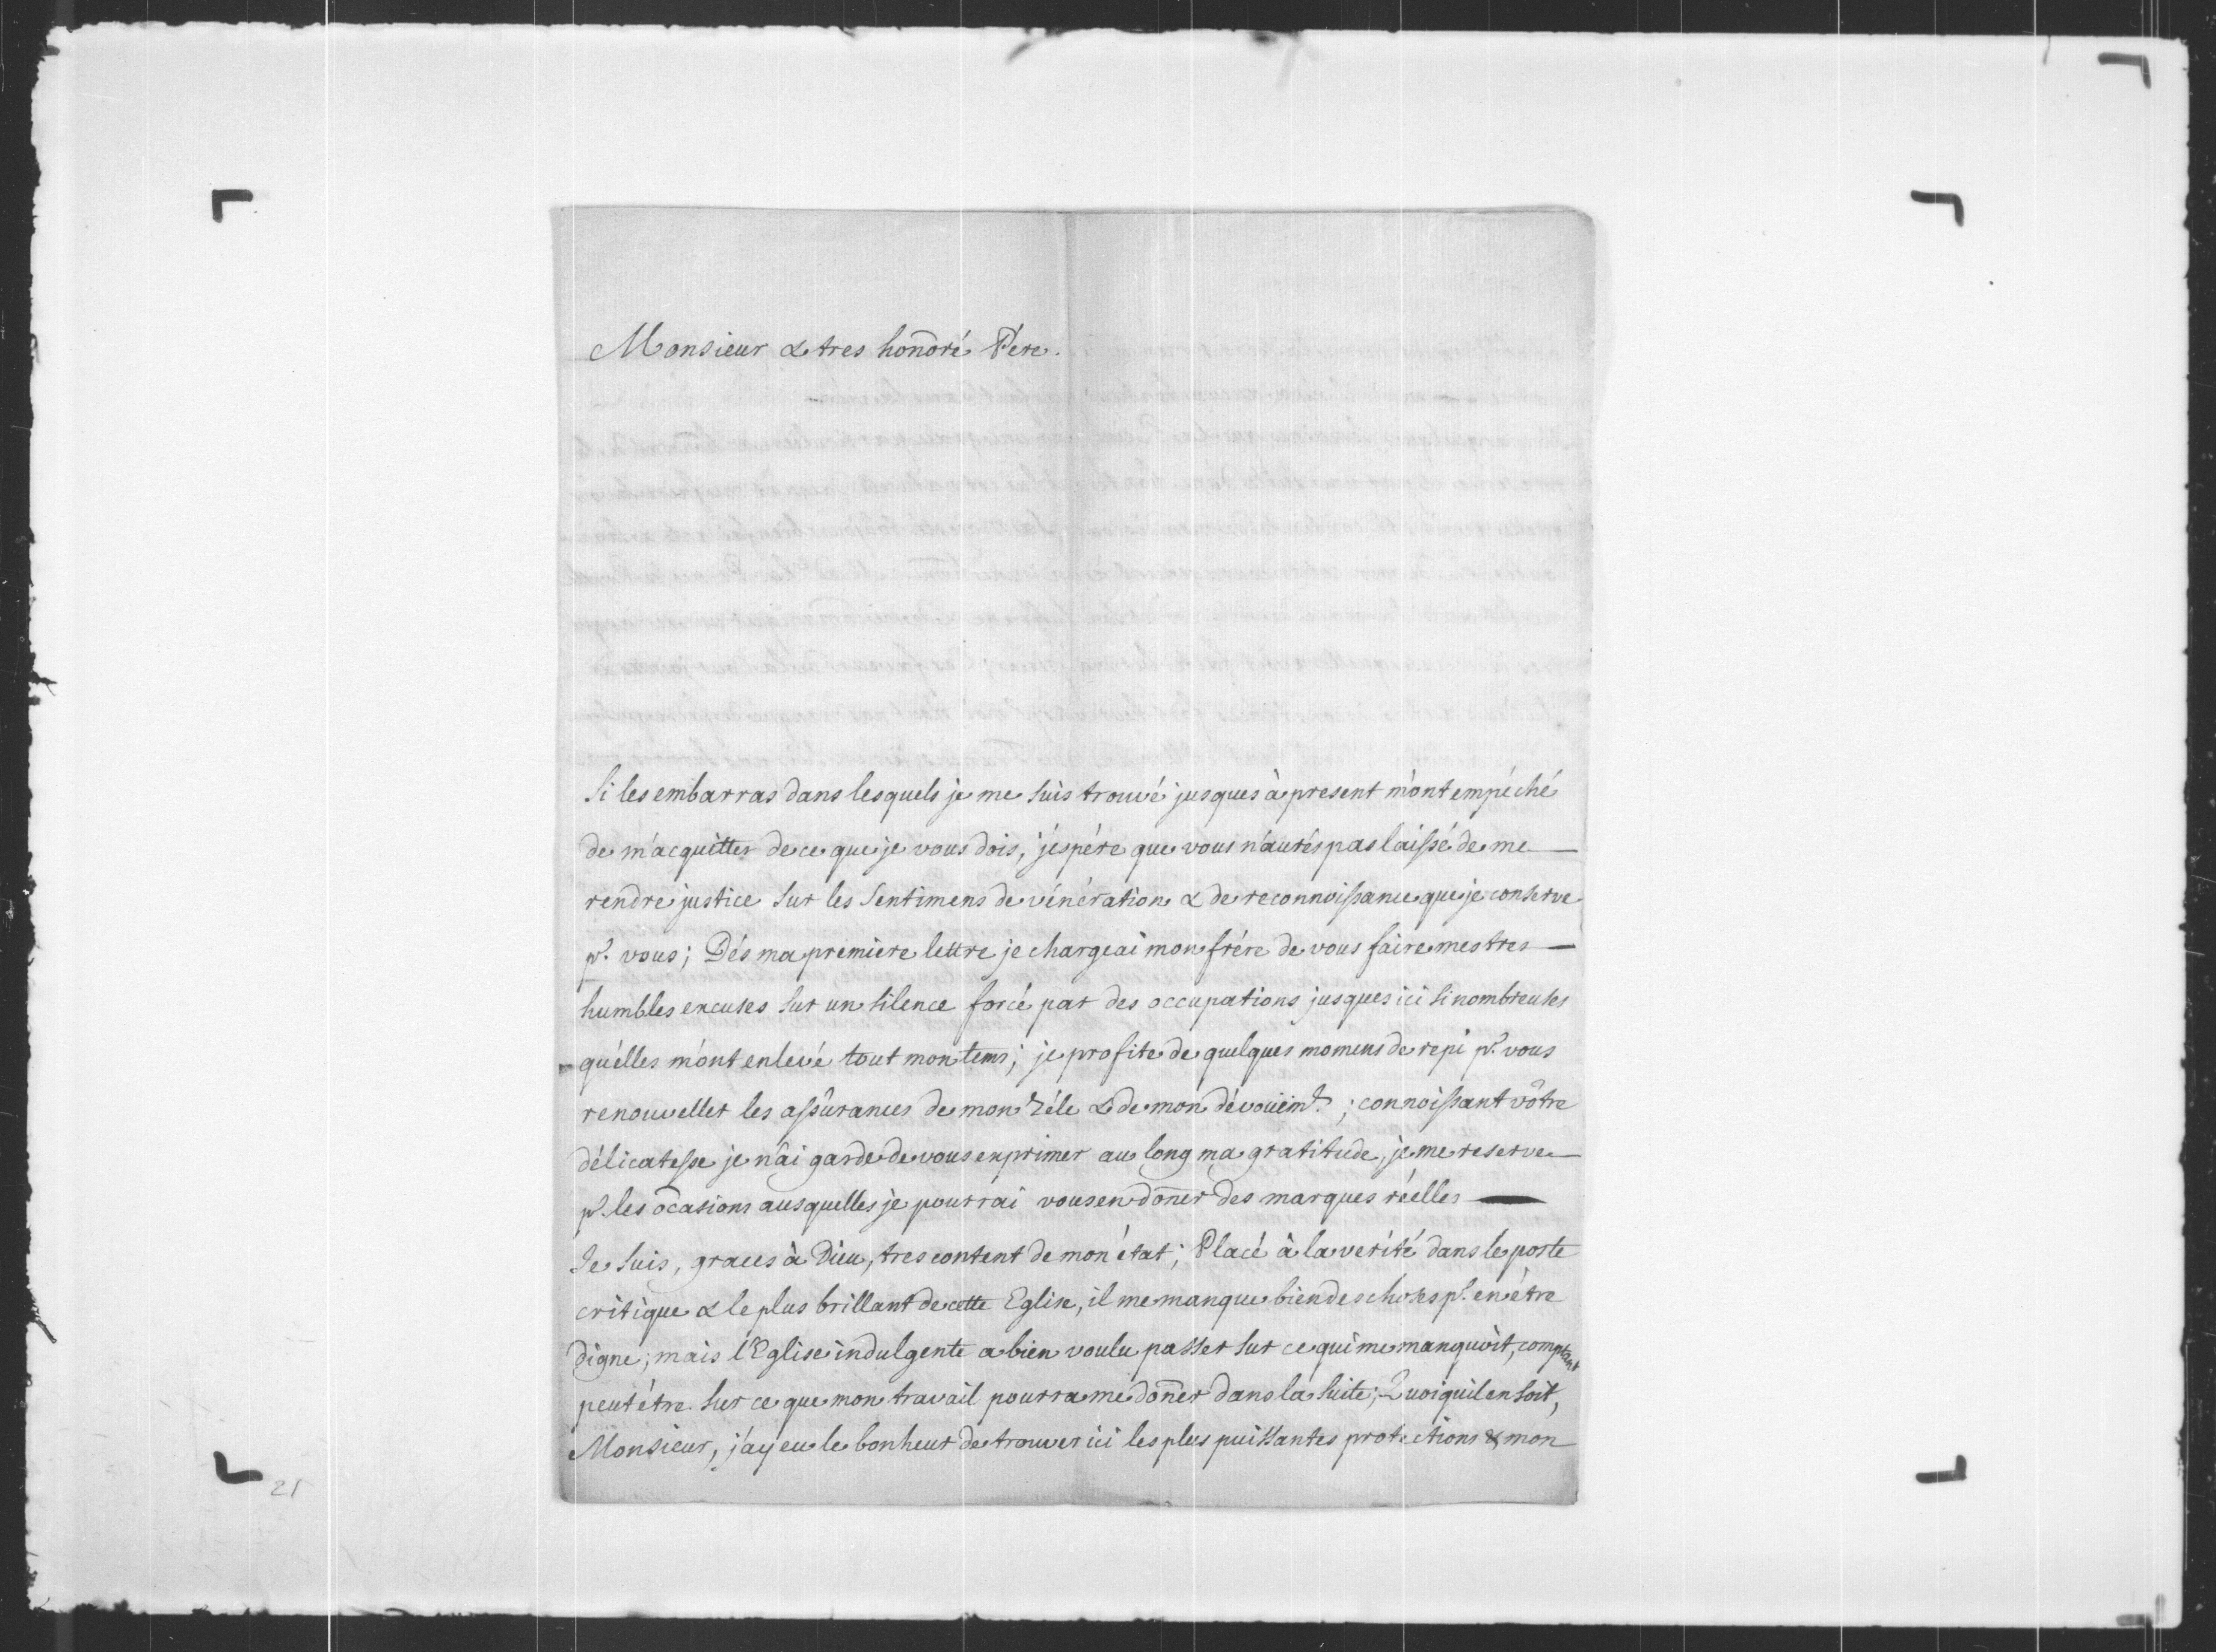 Monsieur & tres honoré Pére.
Si les embarras dans lesquels je me suis trouvé jusques à present m'ont empéché
de m'acquitter de ce que je vous dois, j'éspére que vous n'aurés pas laissé de me
rendre justice sur les sentimens de vénération & de reconnoissance que je conserve
pr. vous; Dés ma premiere lettre je chargeai mon frére de vous faire mes tres
humbles excuses sur un silence forcé par des occupations jusques ici si nombreuses
qu'élles m'ont enlevé tout mon tems; je profite de quelques momens de repi pr. vous
renouveller les assurances de mon zéle & de mon dévouëmt. ; connoissant vôtre
délicatesse je n'ai garde de vous exprimer au long ma gratitude, je me reserve
pr. les ocasions ausquelles je pourrai vous en doner des marques réelles
Je suis, graces à Dieu, tres content de mon état; Placé à la verité dans le poste
critique & le plus brillant de cette Eglise, il me manque bien des choses pr. en étre
digne; mais l'Eglise indulgente a bien voulu passer sur ce qui me manquoit, comptant
peut étre sur ce que mon travail pourra me doner dans la suite; Quoiqu'il en soit,
Monsieur, j'ay eu le bonheur de trouver ici les plus puissantes protections & mon
21